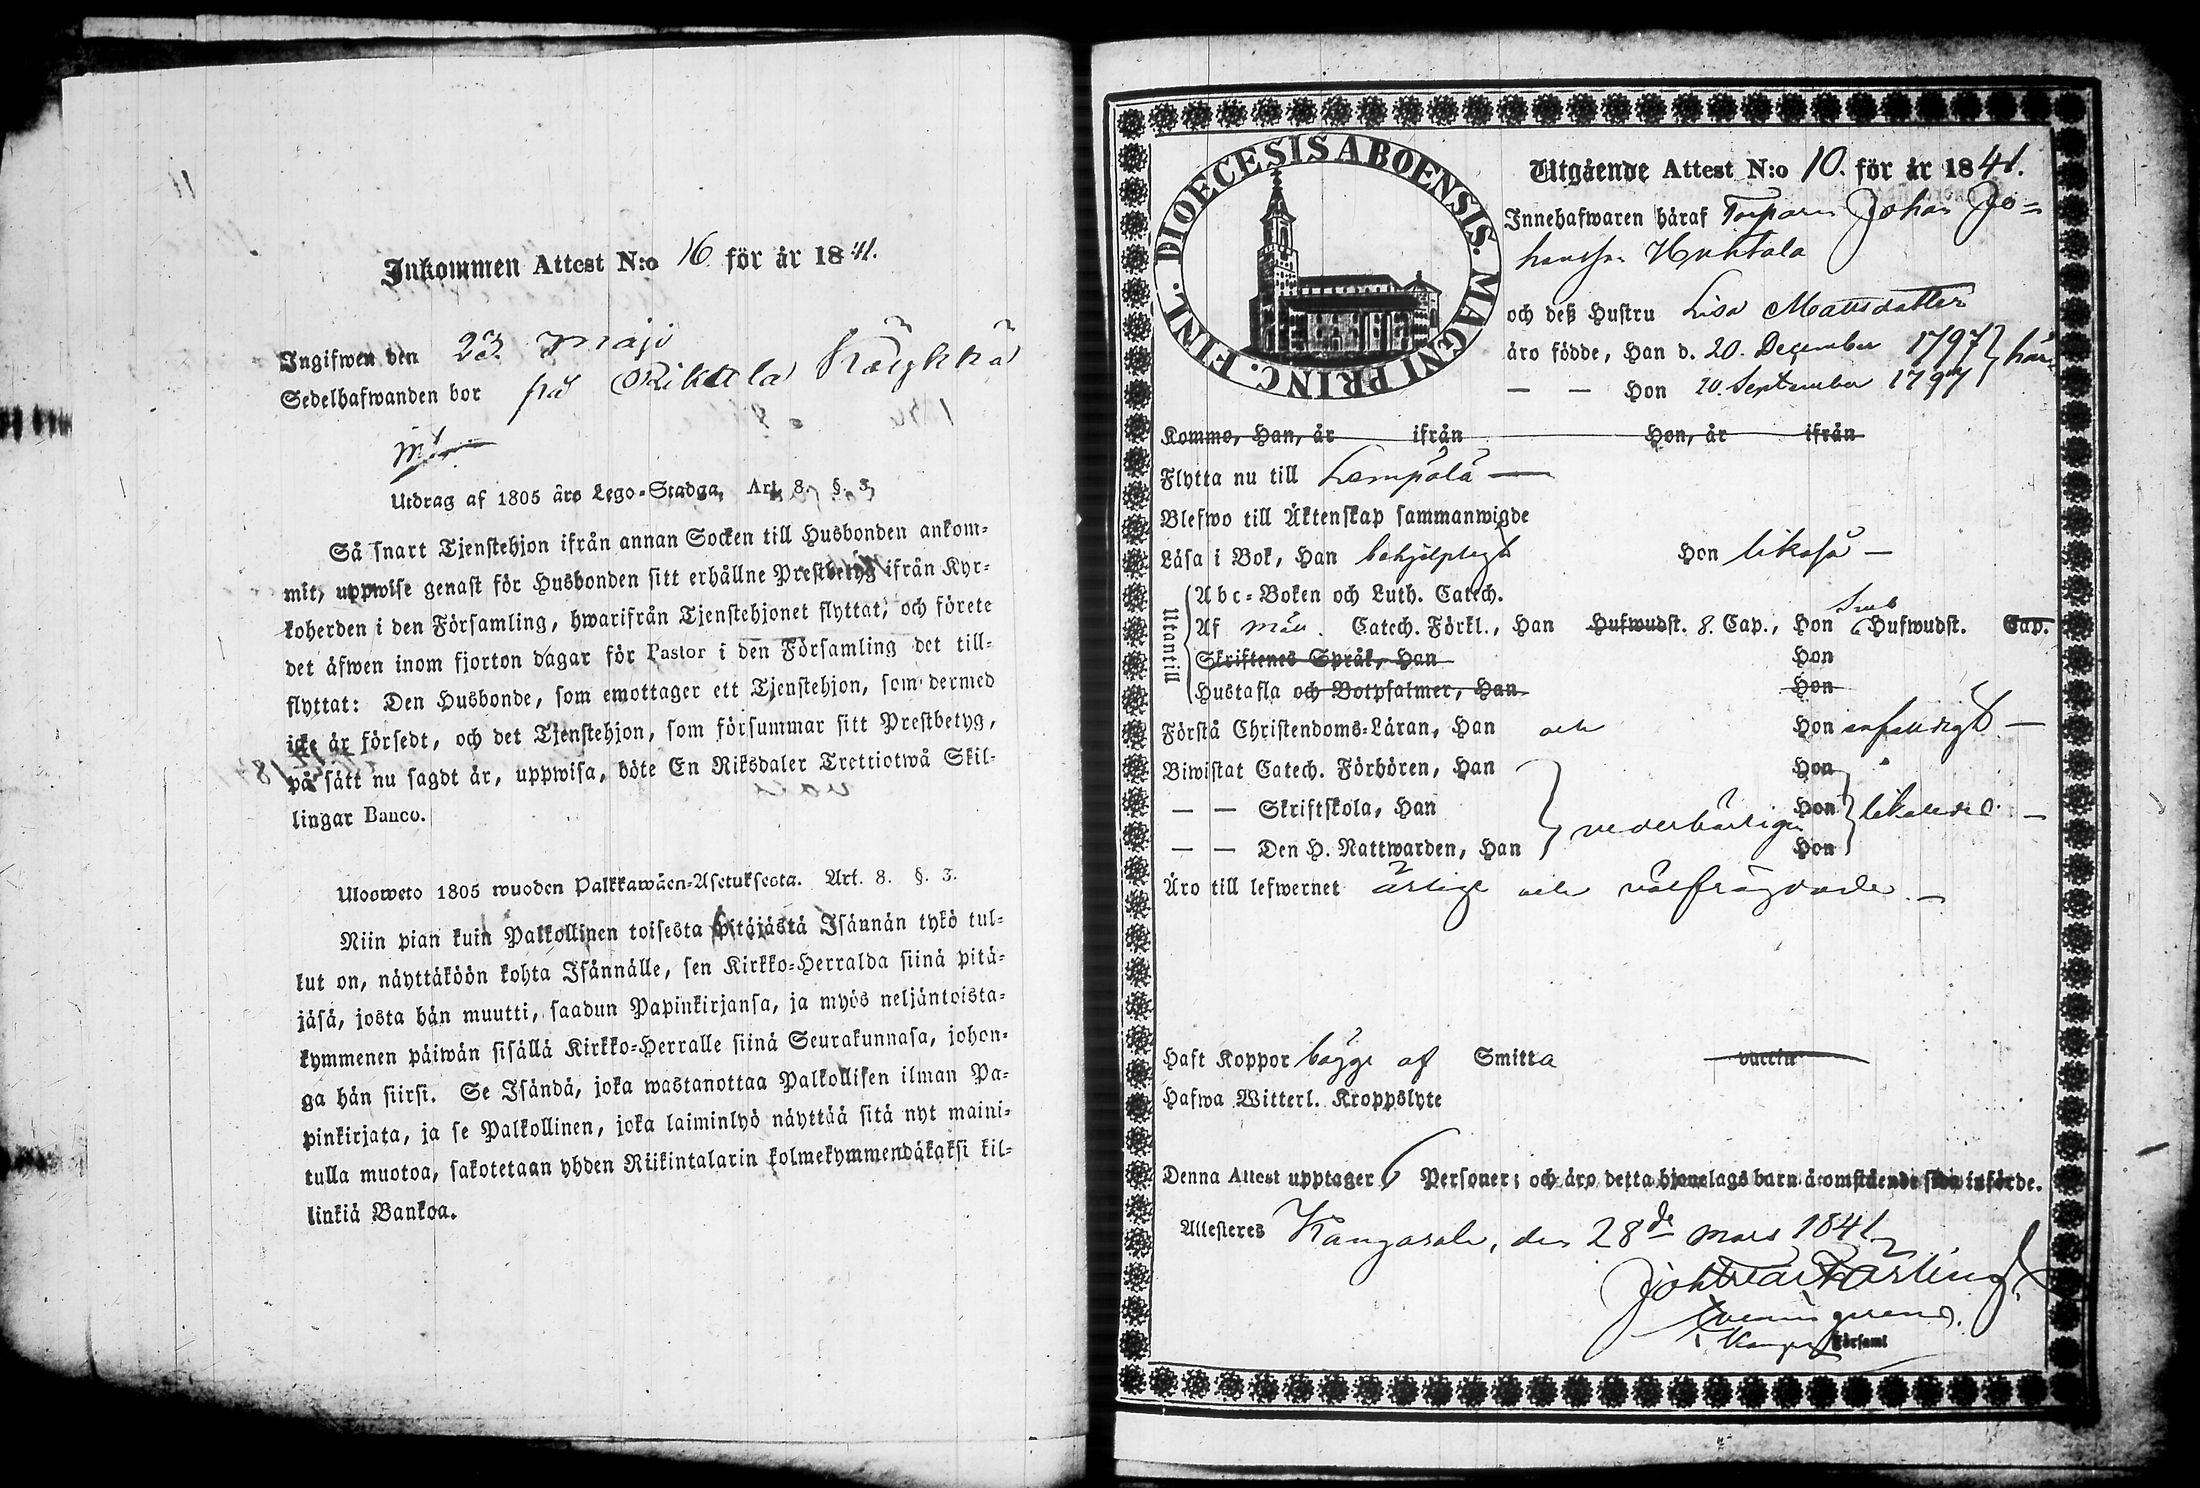 Inkommen Attest N:o 16 för år 1841.
Ingifwen den 23 Maji
Sedelhafwanden bor på Rikala
Utdrag af 1805 års Lego-Stadga, Art. 8. §. 3.
Så snart Tjenstehjon ifrån annan Socken till Husbonden ankom-
mit, uppwise genast för Husbonden sitt erhållne Prestbetyg ifrån Kyr-
koherden i den Församling, hwarifrån Tjenstehjonet flyttat, och förete
det äfwen inom fjorton dagar för Pastor i den Församling det till-
flyttat: Den Husbonde, som emottager ett Tjenstehjon, som dermed
icke är försedt, och det Tjenstehjon, som försummar sitt Prestbetyg,
på sätt nu sagdt är, uppwisa, böte En Riksdaler Trettiotwå Skil-
lingar Banco.
Ulosweto 1805 wuoden Palkkawäen-Asetuksesta. Art. 8. §. 3.
Niin pian kuin Palkollinen toisesta pitäjästä Isännän tykö tul-
lut on, näyttäköön kohta Isännälle, sen Kirkko-Herralda siinä pitä-
jäsä, josta hän muutti, saadun Papinkirjansa, ja myös neljäntoista-
kymmenen päiwän sisällä Kirkko-Herralle siinä Seurakunnasa, johon-
ga hän siirsi. Se Isändä, joka wastanottaa Palkollisen ilman Pa-
pinkirjata, ja se Palkollinen, joka laiminlyö näyttää sitä nyt maini-
tulla muotoa, sakotetaan yhden Riikintalarin kolmekymmendäkaksi kil-
linkiä Bankoa.
DIOECESIS ABOENSIS. MAGNI PRINC. FINL.
Utgående Attest N:o 10. för år 1841.
Innehafwaren häraf Torparen Johan Jo-
hansson Huhtala
och deß Hustru Lisa Mattsdotter
äro födde, Han d. 20. December 1797 här
— — Hon 20. September 1797
Komme, Han, år ifrån Hon, år ifrån
Flytta nu till Lempälä —
Blefwo till Äktenskap sammanwigde
Läsa i Bok, Han behjelpligt Hon likaså —
Utantill
Abc-Boken och Luth. Catech.
Af Catech. Förkl., Han Hufwudst. 8. Cap., Hon Hufwudst. Cap.
Skriftenes Språk, Han Hon
Hustafla och Botpsalmer, Han Hon
Förstå Christendoms-Läran, Han och Hon enfaldigt —
Biwistat Catech. Förhören, Han Hon
— — Skriftskola, Han vederbörligen Hon likaledes —
— — Den H. Nattwarden, Han Hon
Äro till lefwernet ärlige och välfrägdade —
Haft Koppor bägge af Smitta vaccin
Hafwa Witterl. Kroppslyte
Denna Attest upptager 6 Personer; och äro detta hjonelags barn å omstående sida införde.
Attesteras Kangasala, den 28de Mars 1841
i Församl